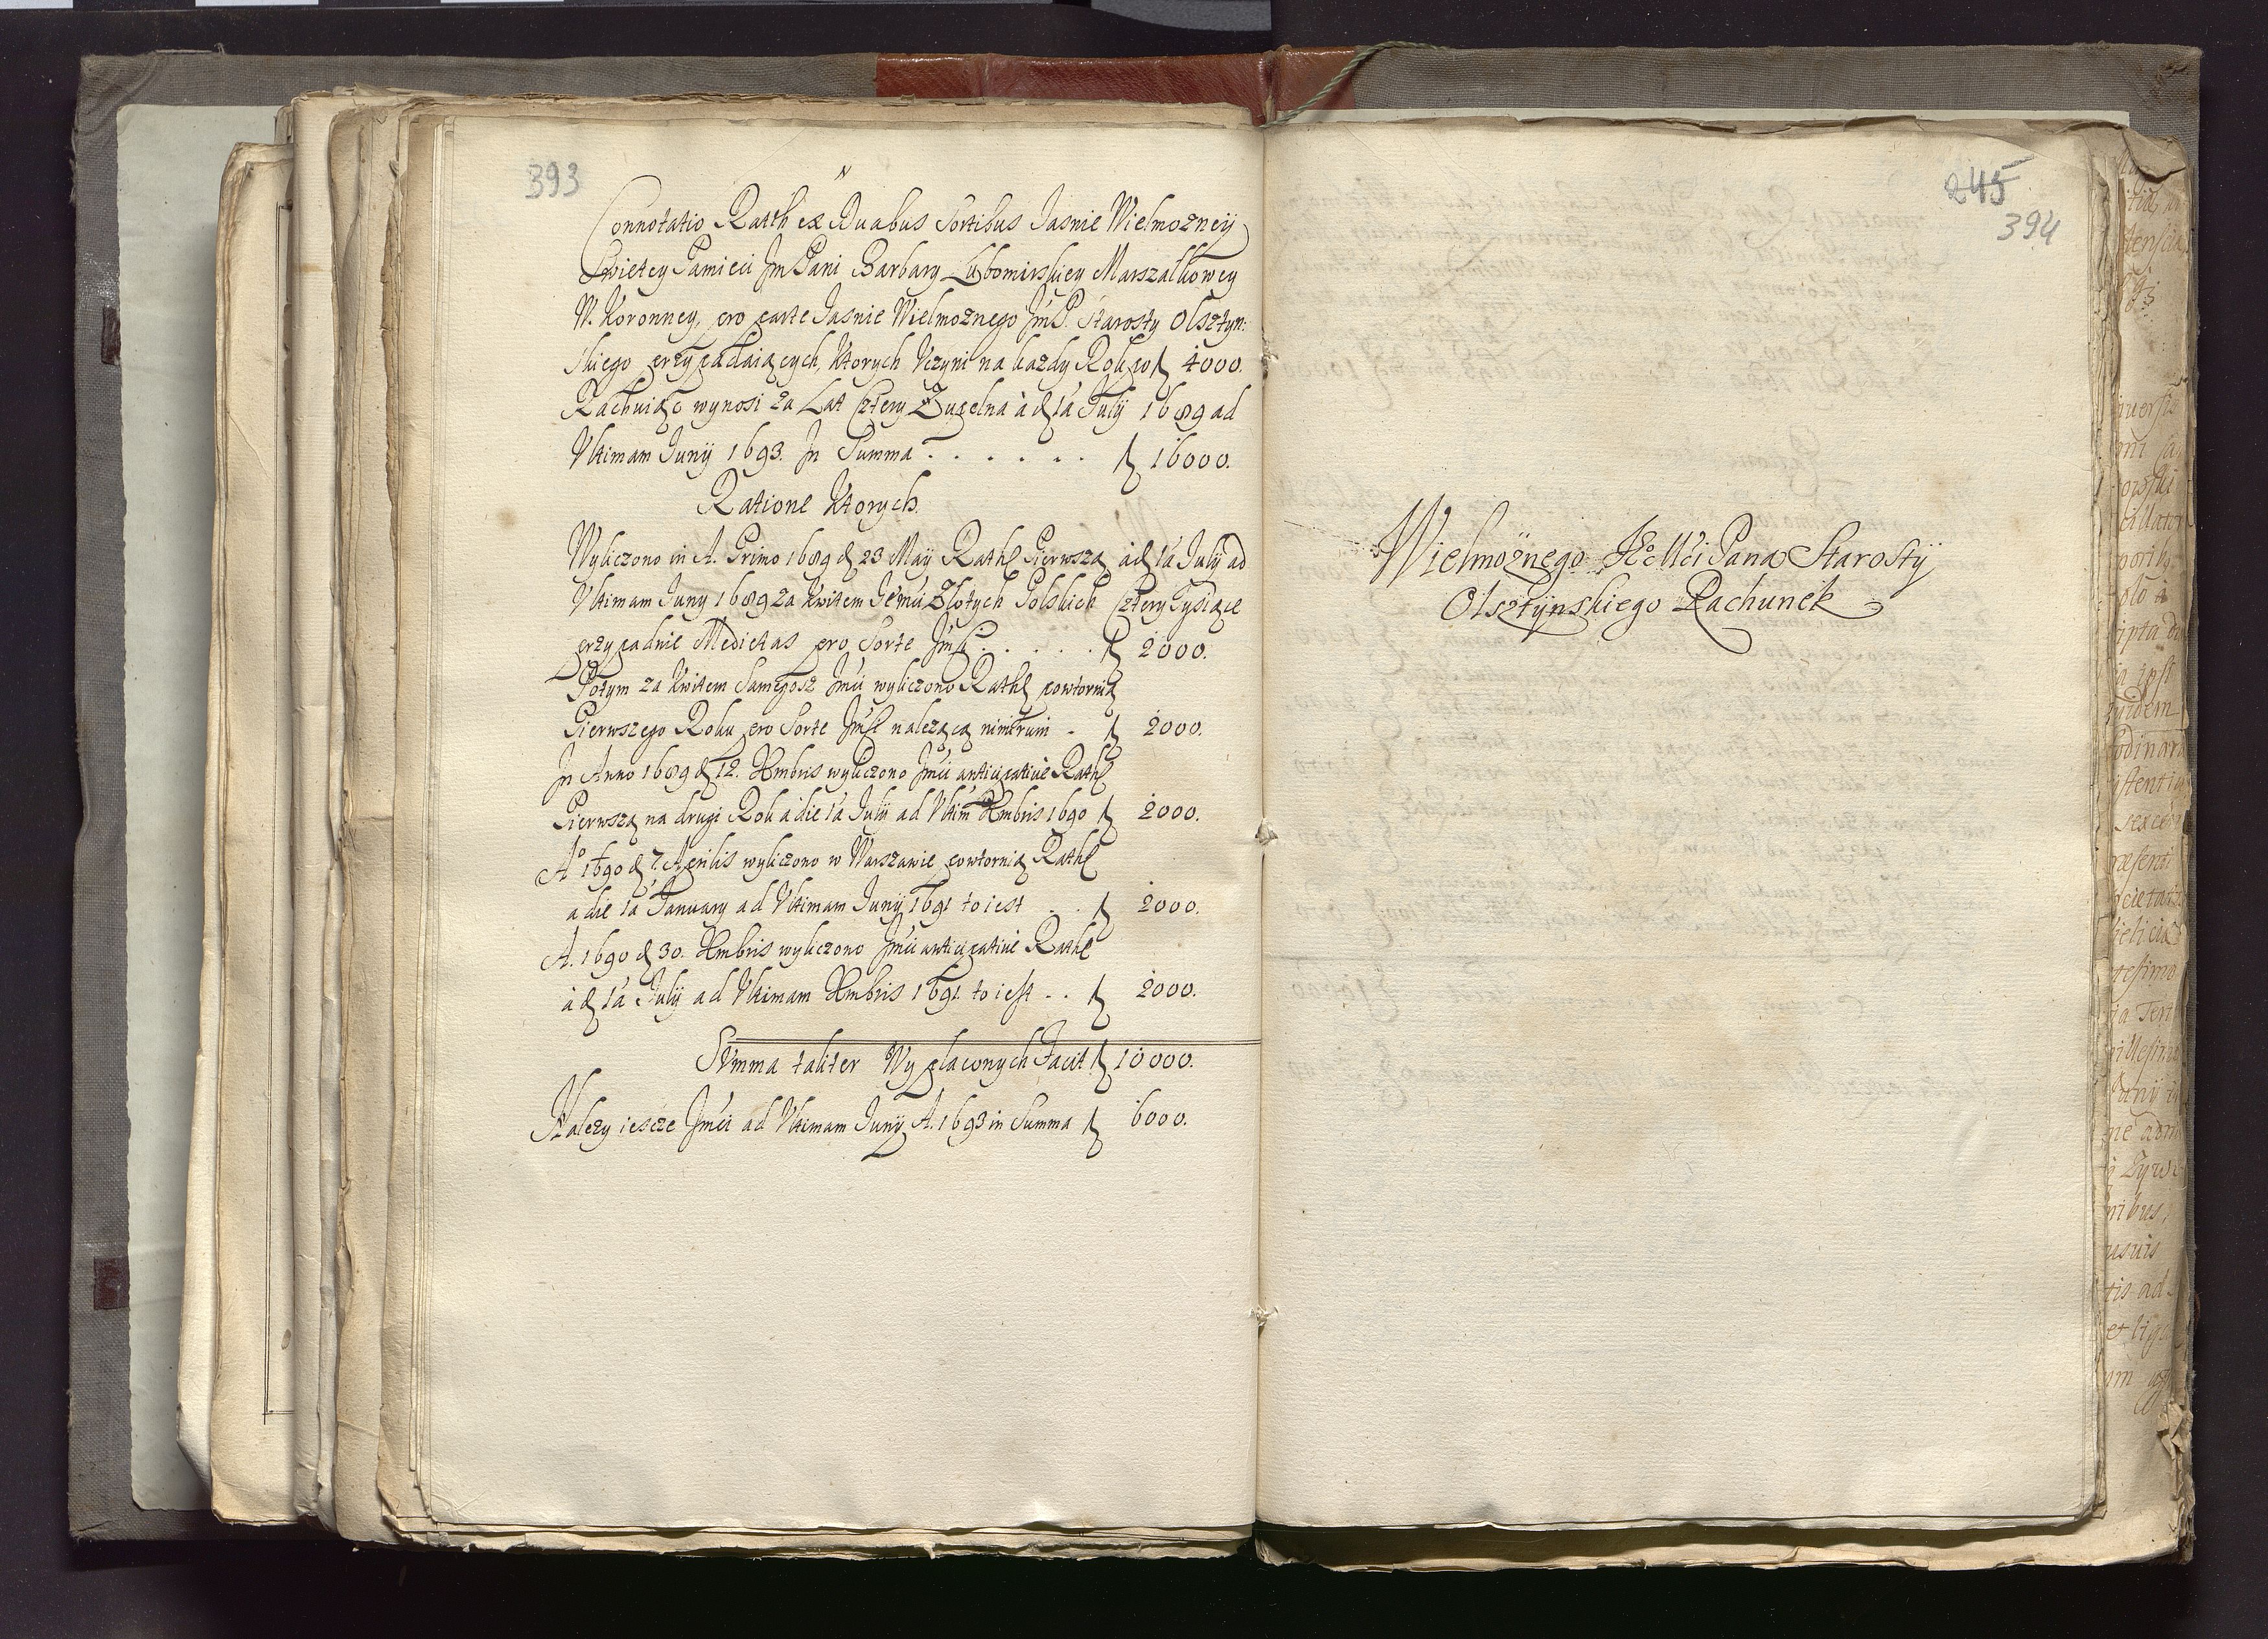 393
Connotatio Rath ex Duabus Sortibus Jasnie Wielmozneÿ
Swietey Pamieci Jm Pani Barbary Lubomirskiey Marszałkowey
W. Koronney, pro parte Jasnie Wielmoznego JmP. Starosty Olsztyn:
skiego przypadaiących, ktorych Vczyni na kazdy Rok po ƒ 4000.
Rachuiąc wynosi za Lat Cztery Zupelna à d 1a Julÿ 1689 ad
Vltimam Junÿ 1693. Jn Summa . . . . . . ƒ 16000.
Ratione ktorych.
Wyliczono in A. Primo 1689 d 23 Maÿ Rathę Pierwszą àd 1a Julÿ ad
Vltimam Juny 1689 za kwitem Jemu Złotych Polskich Cztery Tysiące
przypadnie Medietas pro Sorte . . . . . ƒ 2000.
Potym za kwitem Samegosz Jmći wyliczono Rathę powtornią
Pierwszego Roku pro Sorte nalezącą nimirum - ƒ 2000.
Jn Anno 1689 d 12. Xmbris wyliczono Jmći anticipative Rathę
Pierwszą na drugi Rok à die 1a Julÿ ad Vltim Xmbris 1690 ƒ 2000.
Aº 1690 d 7. Aprilis wyliczono w Warszawie powtornią Rathę
a die 1a January ad Vltimam Junÿ 1691 to iest . . ƒ 2000.
A. 1690 d 30. Xmbris wyliczono Jmći anticipative Rathę
à d 1a Julÿ ad Vltimam Xmbris 1691. to iest . . ƒ 2000.
Summa taliter Wypłaconych Facit ƒ 10000.
Nalezy iescze Jmći ad Vltimam Junÿ A. 1693 in Summa ƒ 6000.
245
394
Wielmoznego Je͠o Mći Pana Starostÿ
Olsztÿnskiego Rachunek